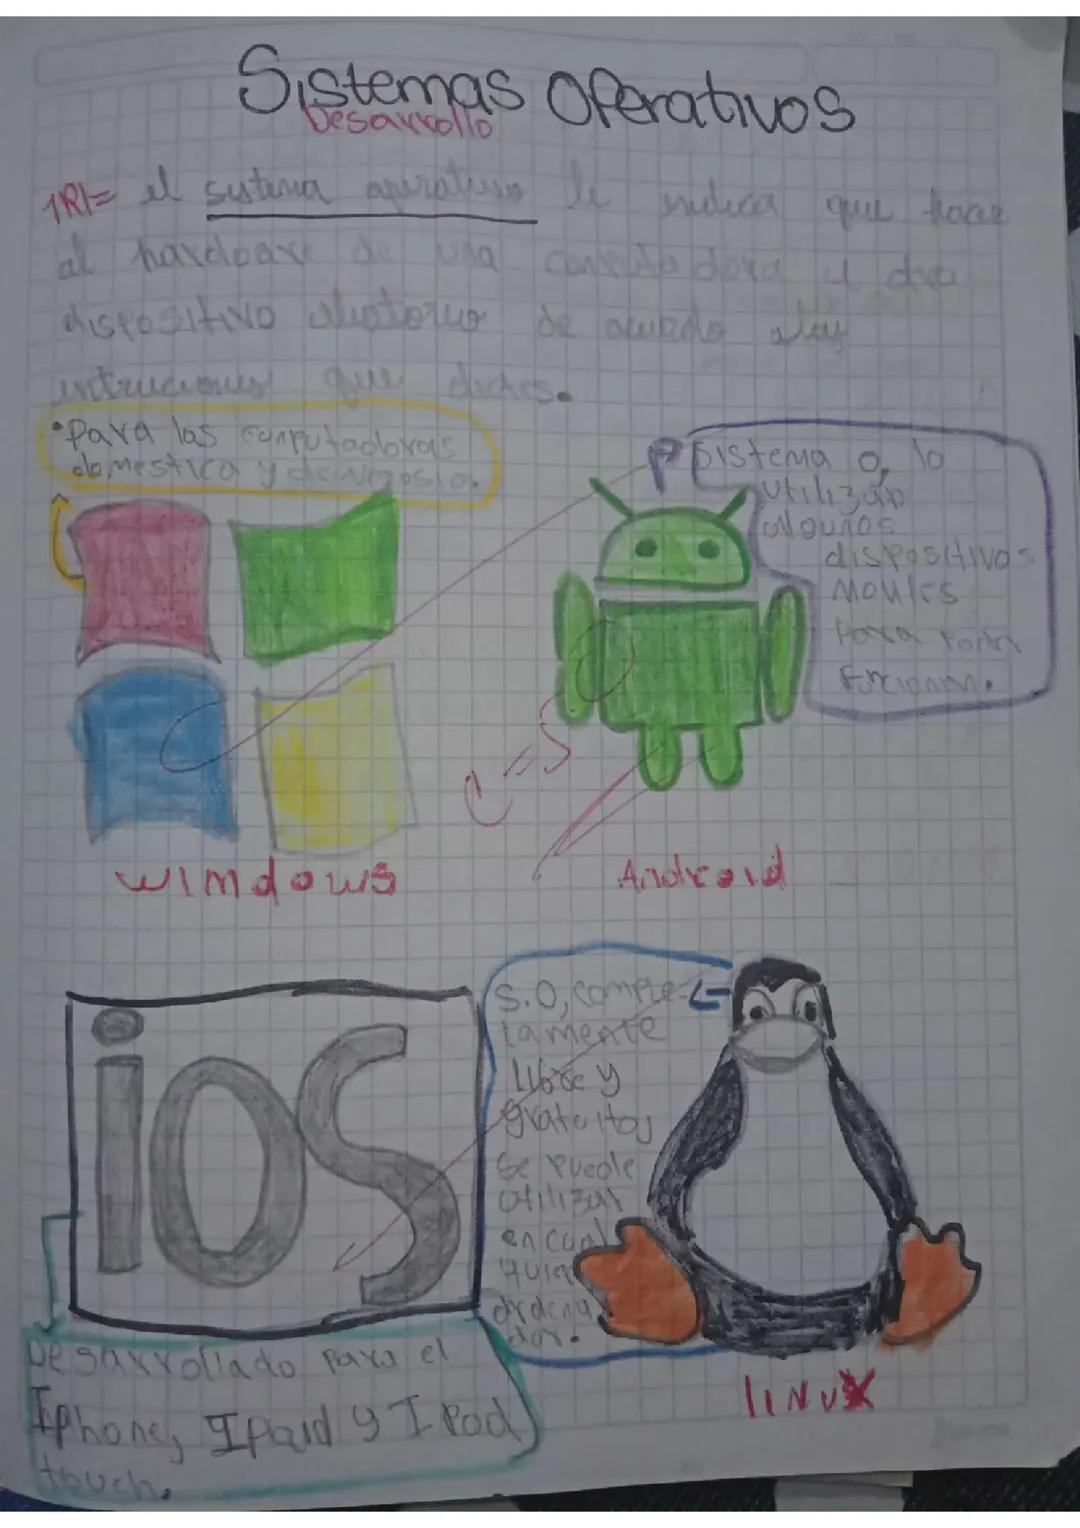 Sistemas Operativos
Desarrollo
1R/= el sistema operativo le indica que hace
al hardoare de una computadora y otro
dispositivo de acuerdo alas
intruciones que dictes.
•Para las computadoras
domestica y de negosio.
sistema o, lo
utilizan
algunos
dispositivos
moviles
para poder
funcionar.
windows
C-5
Android
S.O, comple-
tamente
libre y
gratuitos
se puede
utilizar
en cual
quier
ordena
dor.
iOS
Desarrollado para el
Iphone, IPaid y I Pod
touch.
linux